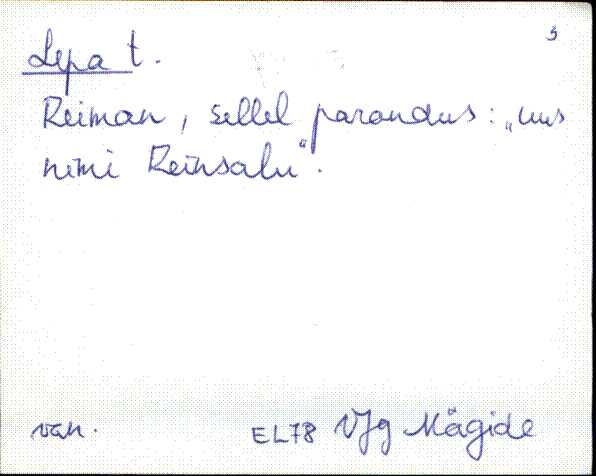 5
Lepa t.
Reiman, sellel parandus: „uus
nimi Reinsalu".
van. EL78 VJg Mägide